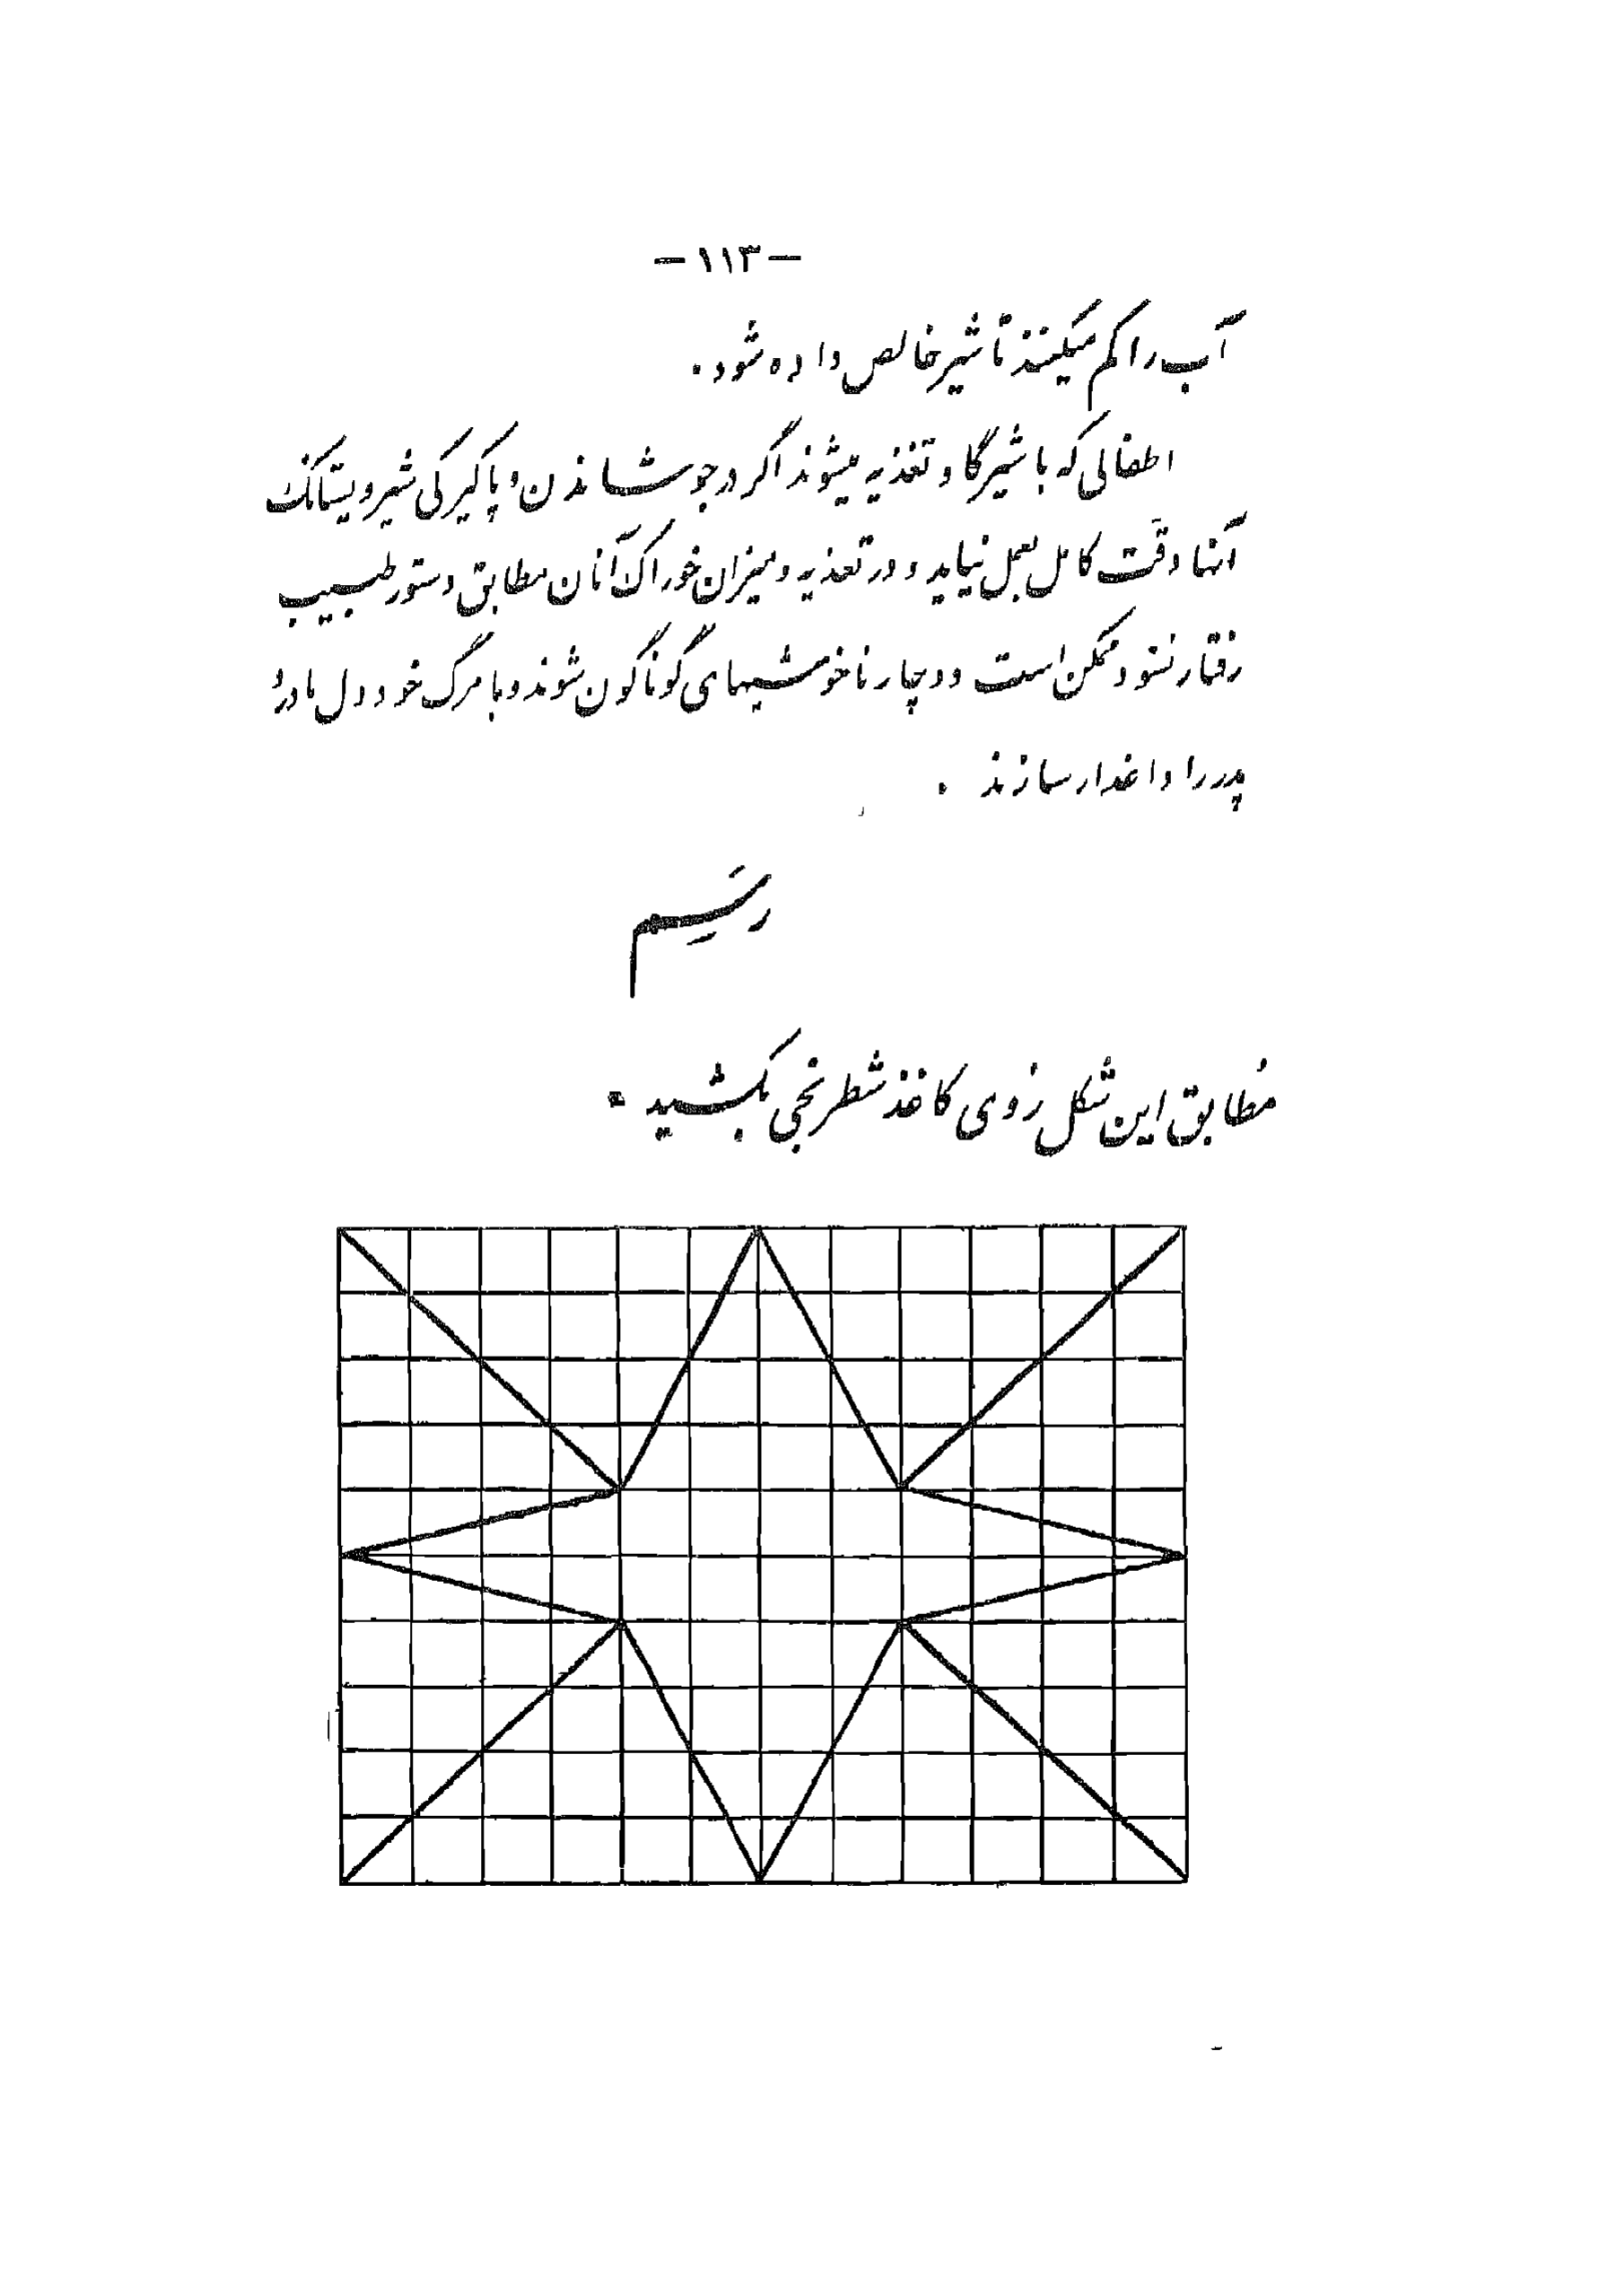 -۱۱۳-
آب را کم میکنند تا شیر خالص داده شود.
اطفالی که با شیر گاو تغذیه میشوند اگر در جوشاندن و پاکیزگی شیر و پستانک
آنها دقت کامل بعمل نیاید و در تغذیه و میزان خوراک آنان مطابق دستور طبیب
رفتار نشود ممکن است دچار ناخوشیهای گوناگون شوند و با مرگ خود دل مادر و
پدر را داغدار سازند .
رسم
مطابق این شکل روی کاغذ شطرنجی بکشید .